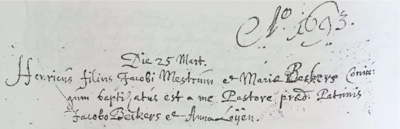 Aº 1693.
Die 25 Mart.
Henricus filius Jacobi Mestrum et Maria Beckers Coniu
gum baptizatus est a me Pastore præd. Patrinis
Jacobo Beckers et Anna Loÿen.